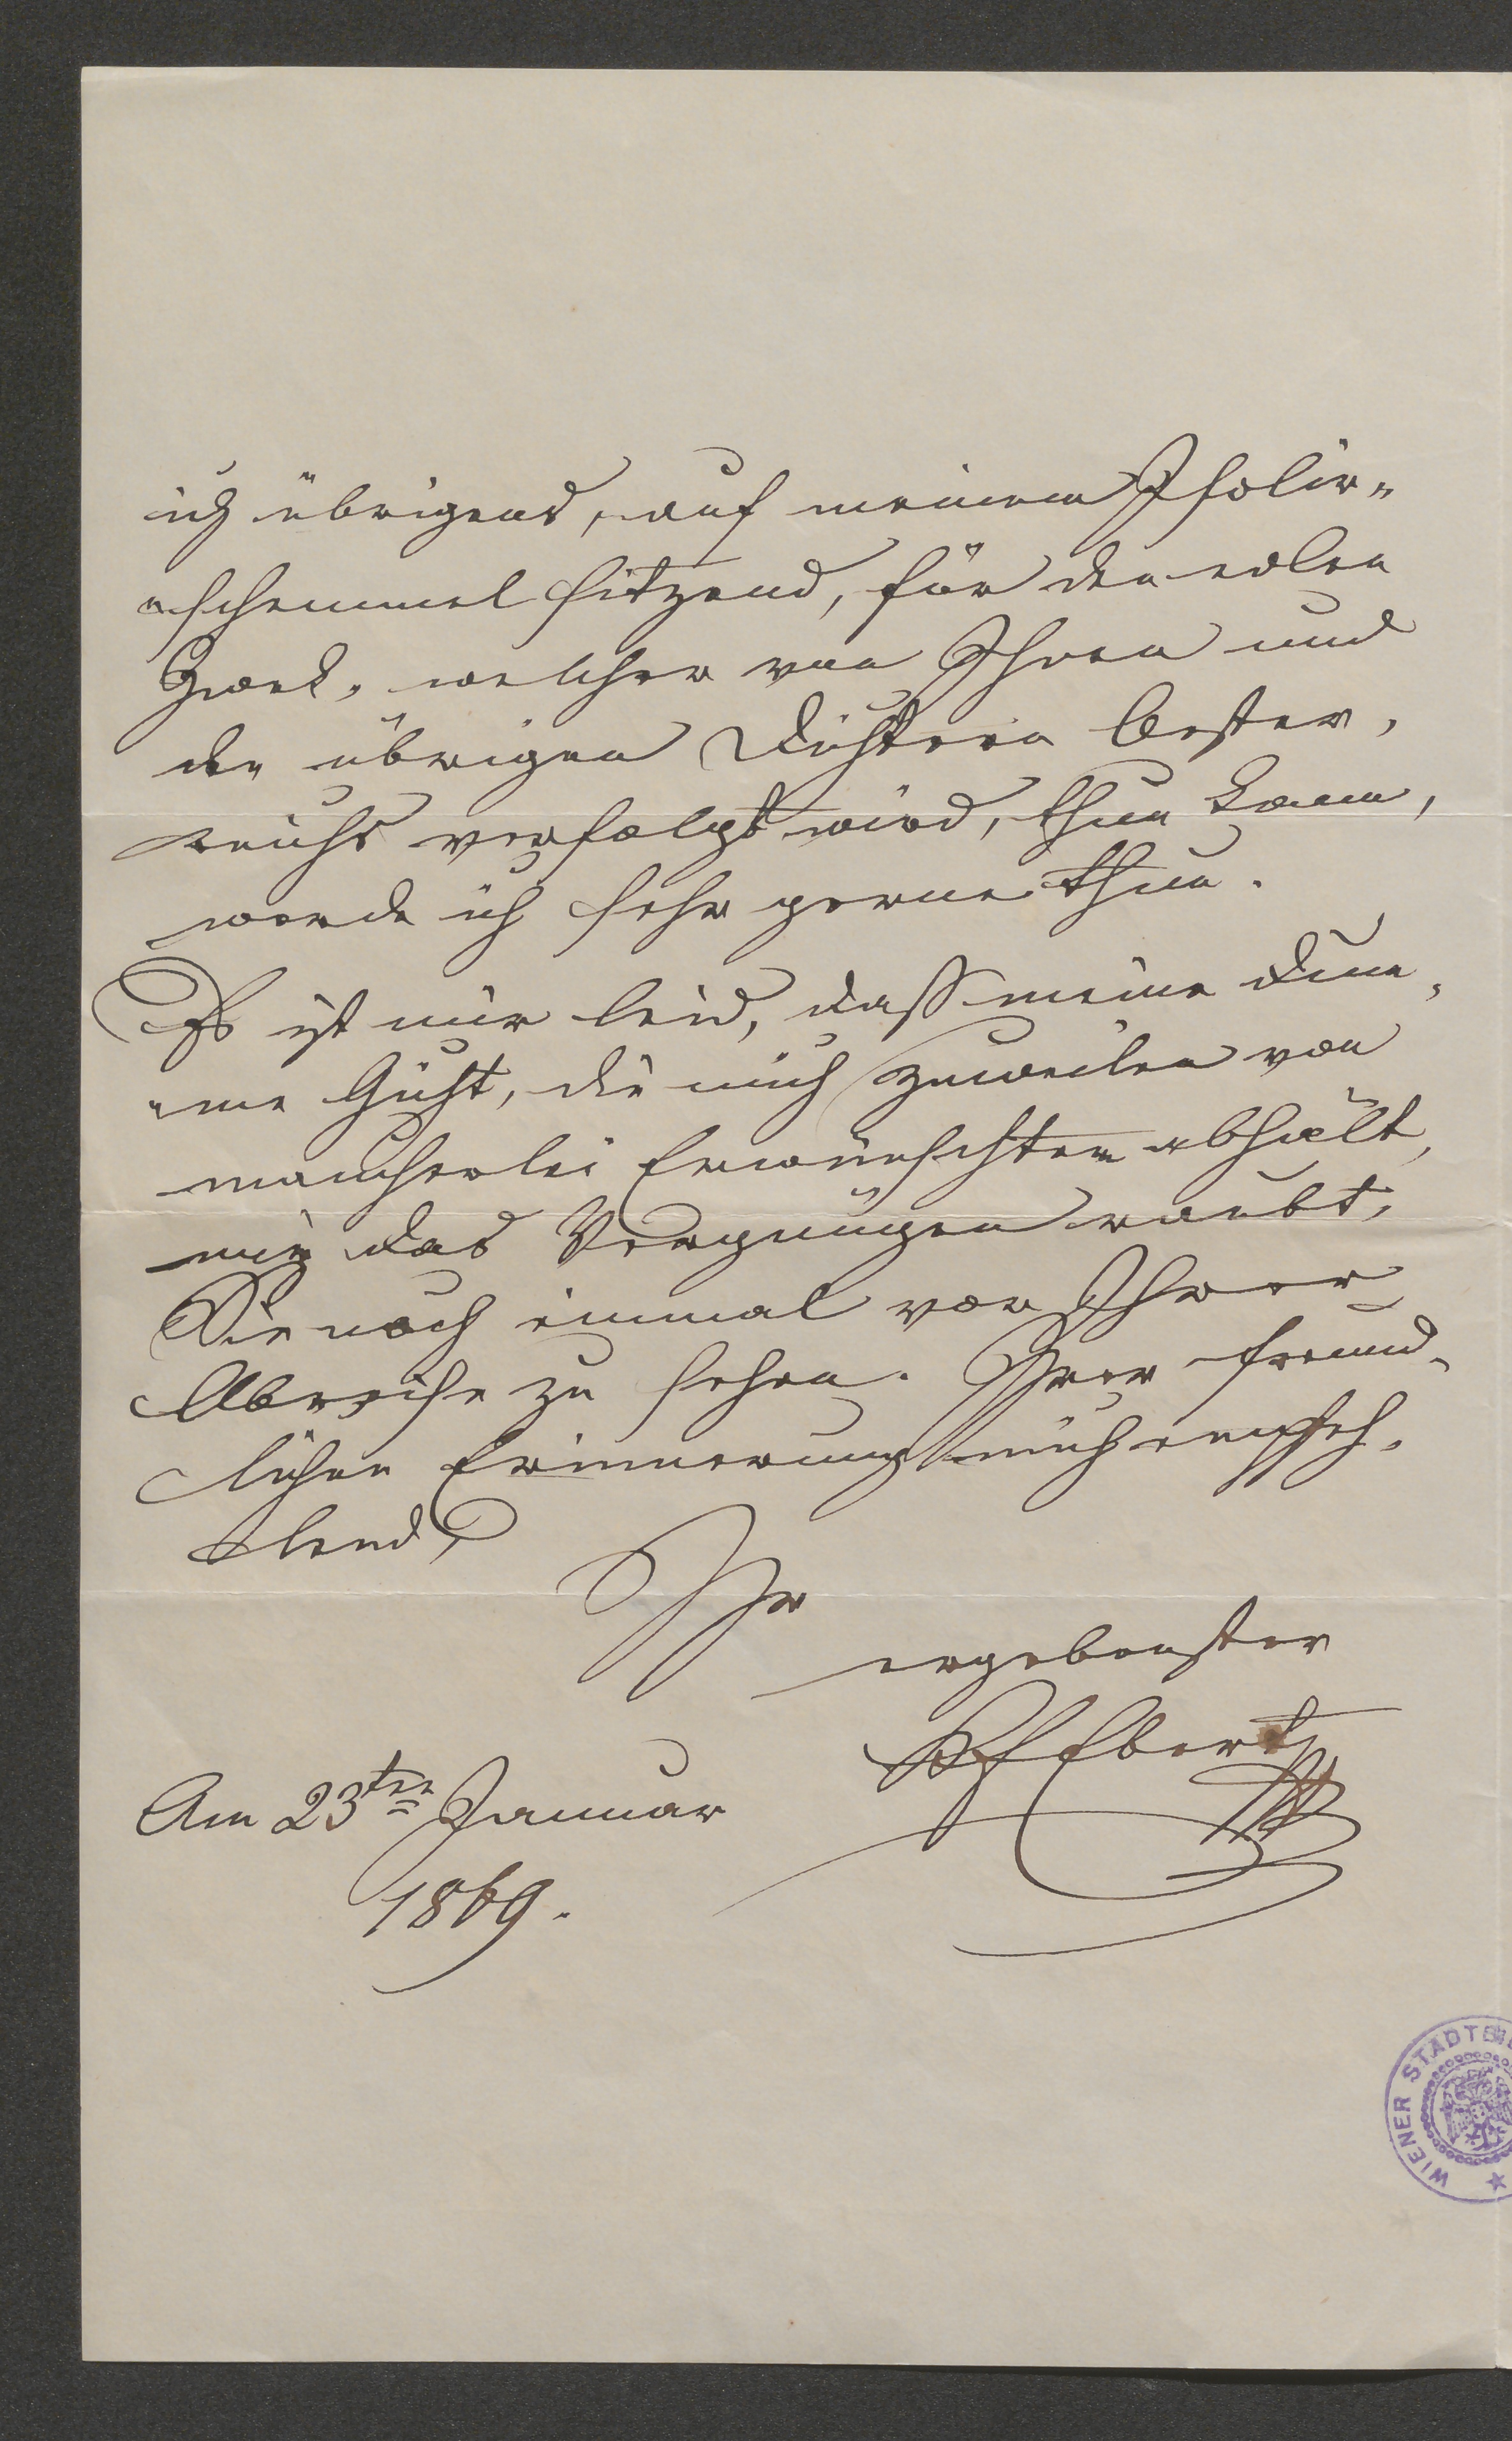 ich übrigens, auf meinem Isolir-
schemmel sitzend, für den edlen
Zweck, welcher von Ihnen und
den übrigen Dichtern Oester-
reichs verfolgt wird, thun kann,
werde ich sehr gerne thun.
Es ist mir leid, dass meine dum-
me Gicht, die mich zuweilen von
mancherlei Erwünschten abhält,
mir das Vergnügen raubt,
Sie noch einmal vor Ihrer
Abreise zu sehen. Ihrer freund-
lichen Erinnerung mich empfeh-
lend,
Ihr
ergebenster
KEEbert
Am 23ten Januar
1869.
WIENER STADTBI